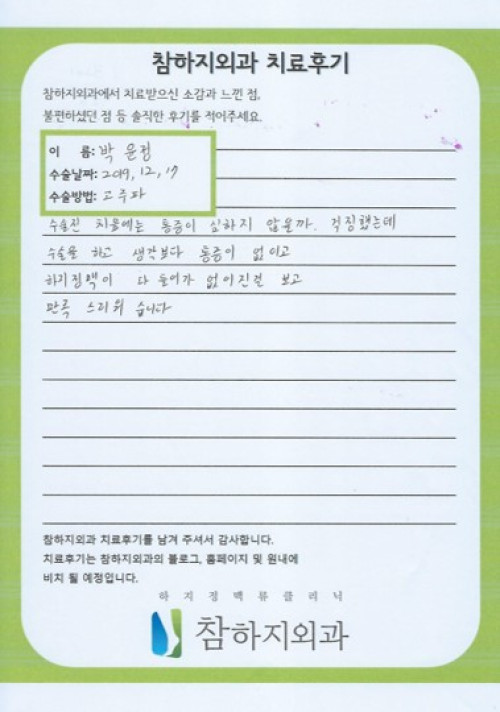 참하지외과 치료후기
참하지외과에서 치료받으신 소감과 느낀 점,
불편하셨던 점 등 솔직한 후기를 적어주세요.
이 름: 박 윤정
수술날짜: 2019, 12, 17
수술방법: 고주파
수술전 처음에는 통증이 심하지 않을까. 걱정했는데
수술을 하고 생각보다 통증이 없이고
하지정맥이 다 들어가 없어진걸 보고
만족 스러워 습니다
참하지외과 치료후기를 남겨 주셔서 감사합니다.
치료후기는 참하지외과의 블로그, 홈페이지 및 원내에
비치 될 예정입니다.
하지정맥류클리닉
참하지외과